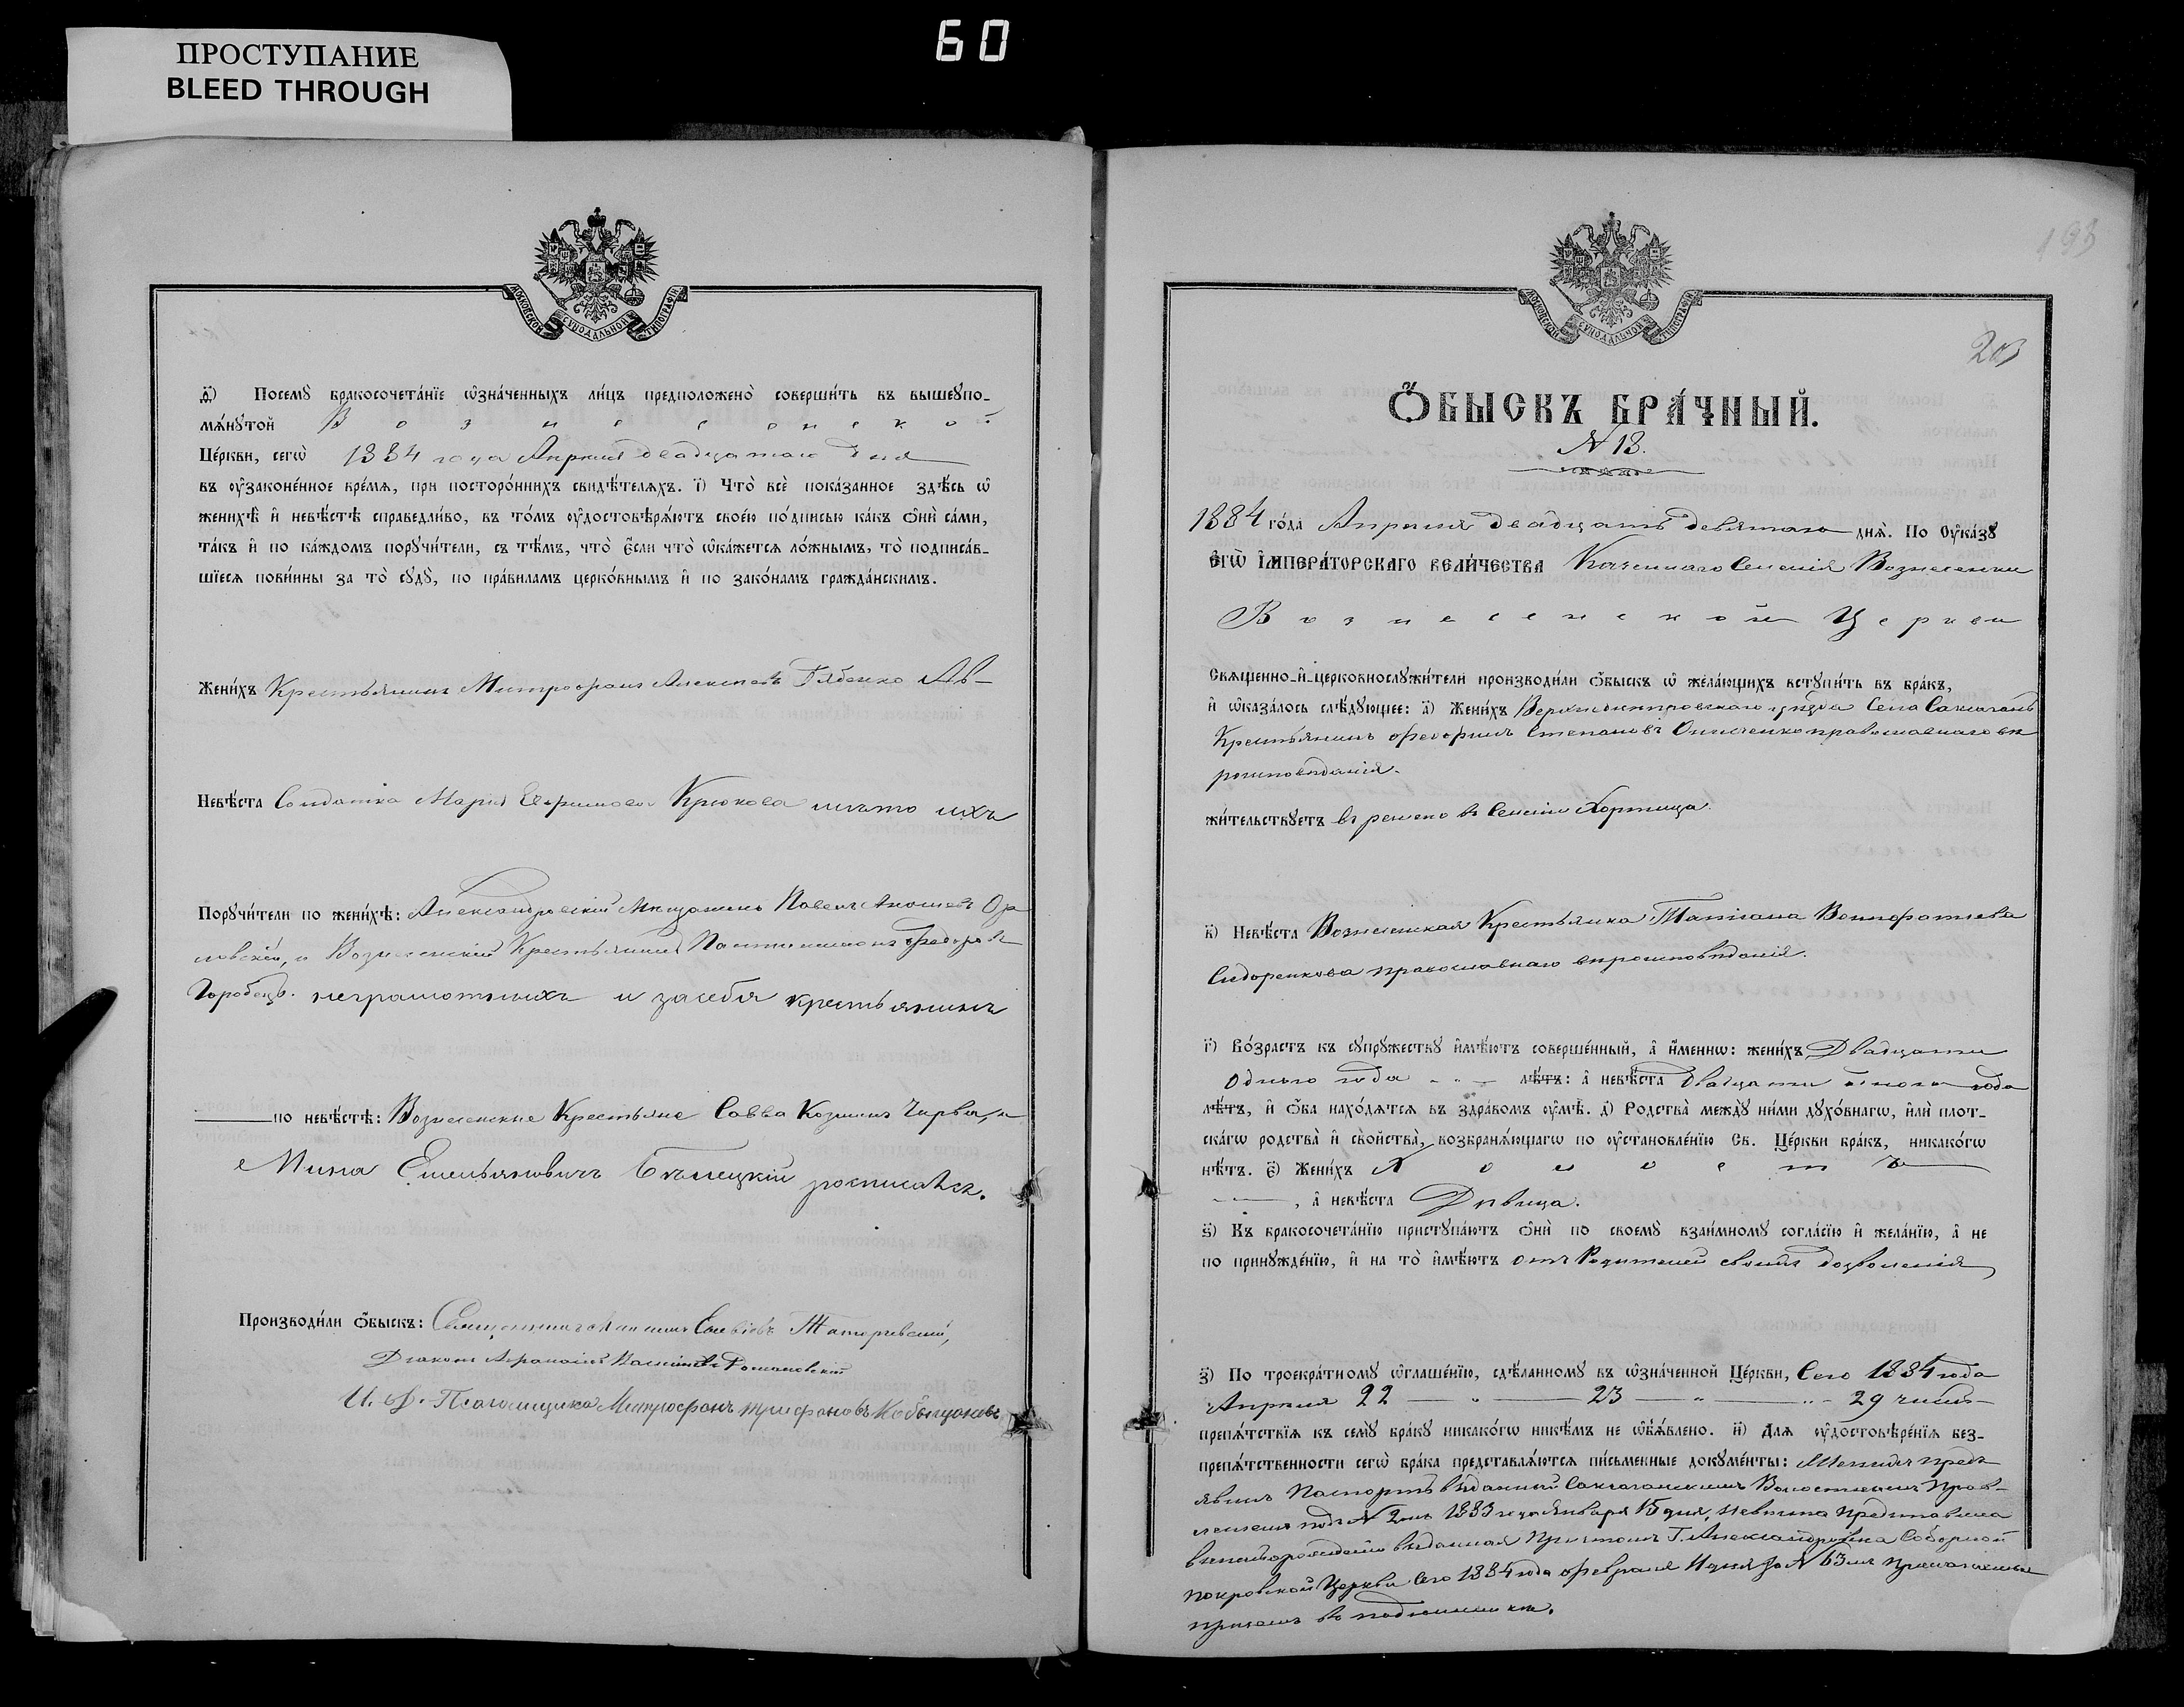 ПРОСТУПАНИЕ
BLEED THROUGH
60
МОСКОВСКОЙ СѴНОДАЛЬНОЙ ТИПОГРАФІИ.
ѳ҃) Посемꙋ̀ бракосочета́нїе ѡ҆зна́ченныхъ ли́цъ предположено̀ соверши́ть въ вышеꙋпо-
мѧ́нꙋтой Вознесенской
Це́ркви, сегѡ̀ 1884 года Апреля двадцатаго дня
въ ᲂу҆законе́нное вре́мѧ, при посторо́ннихъ свидѣ́телѧхъ. і҃) Что̀ всѐ пока́занное здѣ́сь ѡ҆
женихѣ̀ и҆ невѣ́стѣ справедли́во, въ то́мъ ᲂу҆достовѣрѧ́ютъ свое́ю по́дписью ка́къ ѻ҆нѝ са́ми,
та́къ и҆ по ка́ждомъ порꙋчи́тели, съ тѣ́мъ, что̀ є҆́сли что̀ ѡ҆ка́жетсѧ ло́жнымъ, то̀ подписа́в-
шїесѧ пови́нны за то̀ сꙋдꙋ̀, по пра́виламъ церко́внымъ и҆ по зако́намъ гражда́нскимъ.
Жени́хъ Крестьянинъ Митрофанъ Алексеевъ Гябенко Ав-
Невѣ́ста Солдатка Мария Ефимова Крюкова место ихъ
Порꙋчи́тели по женихѣ̀: Александровскій Мещанинъ Павелъ Ор-
ловскій, и Вознесенскій Крестьянинъ Пантелимонъ Федоровъ
Горобець. неграмотныхъ и засебя крестьянинъ
по невѣ́стѣ: Вознесенские Крестьяне Савва Козминъ Чирва, и
Мина Емельяновичъ Бѣлецкій росписалсь.
Производи́ли ѻ҆́быскъ: Священникъ
Діаконъ Афанасій Романовскій
И. Д. Псаломщика Митрофанъ Трифановъ
193
203
МОСКОВСКОЙ СѴНОДАЛЬНОЙ ТИПОГРАФІИ.
Ѻ҆́БЫСКЪ БРА́ЧНЫЙ.
N 18.
1884 го́да Апреля двадцать девятаго днѧ̀. По Оу҆ка́зꙋ
Е҆гѡ̀ І҆мпера́торскаго вели́чества Казеннаго Селенія Вознесенки
Вознесенской Церкви
Свѧщенно-и҆-церковнослꙋжи́тели производи́ли ѻ҆́быскъ ѡ҆ жела́ющихъ встꙋпи́ть въ бра́къ,
и҆ ѡ҆каза́лось слѣ́дꙋющее: а҃) Жени́хъ Верхнеднепровскаго уезда Села Саксагань
Крестьянинъ Федоръ Степановъ Онищенко православнаго ве
роисповѣданія.
жи́тельствꙋетъ времено в Селеніи Хортица.
в҃) Невѣ́ста Вознесенская Крестьянка Татіана Вонифатіева
Сидоренкова православнаго вероисповѣданія.
г҃) Во́зрастъ къ сꙋпрꙋ́жествꙋ и҆мѣ́ютъ соверше́нный, а҆ и҆́менно: жени́хъ Двадцати
одного года лѣ́тъ: а҆ невѣ́ста двадцати одного года
лѣ́тъ, и҆ ѻ҆́ба нахо́дѧтсѧ въ здра́вомъ ᲂу҆мѣ̀. д҃) Родства̀ междꙋ̀ ни́ми дꙋхо́внагѡ, и҆лѝ плот-
ска́гѡ родства̀ и҆ сво́йства̀, возбранѧ́ющагѡ по ᲂу҆становле́нїю Св. Це́ркви бра́къ, никако́гѡ
нѣ́тъ. є҃) Жени́хъ Холостъ
, а҆ невѣ́ста Девица.
ѕ҃) Къ бракосочета́нїю пристꙋпа́ютъ ѻ҆нѝ по своемꙋ̀ взаи́мномꙋ согла́сїю и҆ жела́нїю, а҆ не
по принꙋжде́нїю, и҆ на то̀ и҆мѣ́ютъ отъ Родителей своихъ дозволенія
з҃) По троекра́тномꙋ ѡ҆глаше́нїю, сдѣ́ланномꙋ въ ѡ҆зна́ченной Це́ркви, Сего 1884 года
Апреля 22 — „ — 23 — „ — 29 чиселъ
препѧ́тствїѧ къ семꙋ̀ бра́кꙋ никако́гѡ никѣ́мъ не ѡ҆б̾ѧ́влено. и҃) Длѧ ᲂу҆достовѣре́нїѧ без-
препѧ́тственности сегѡ̀ бра́ка представлѧ́ютсѧ пи́сьменные докꙋме́нты: Женихъ предъ
явилъ Паспортъ выданный Саксаганскимъ Волостнымъ Прав-
леніемъ подъ N 2мъ 1883 года Января 15 дня, Невеста представила
выданная Причтомъ Г. Александровска Соборной
Покровской Церкви Сего 1884 года Февраля 11 дня за N 63мъ